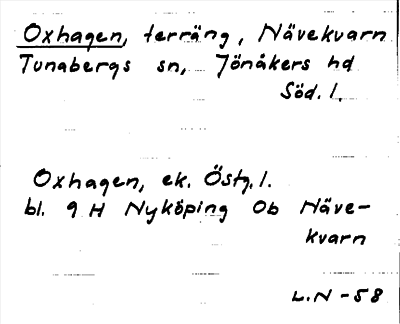 Oxhagen, terräng, Nävekvarn
Tunabergs sn, Jönåkers hd
Söd. l.
Oxhagen, ek. Östg. l.
bl. 9 H Nyköping Ob Näve-
kvarn
L.N -58